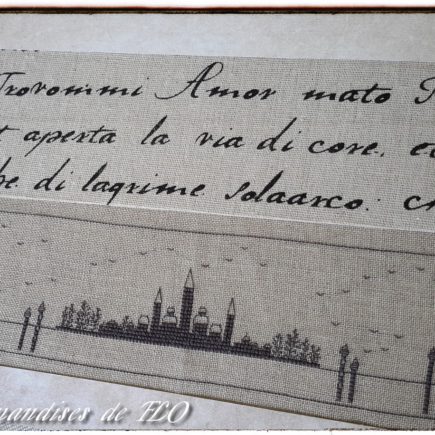 Trovommi Amor mato
aperta la via di core.
di lagrime solaarco:
mandises de FLO